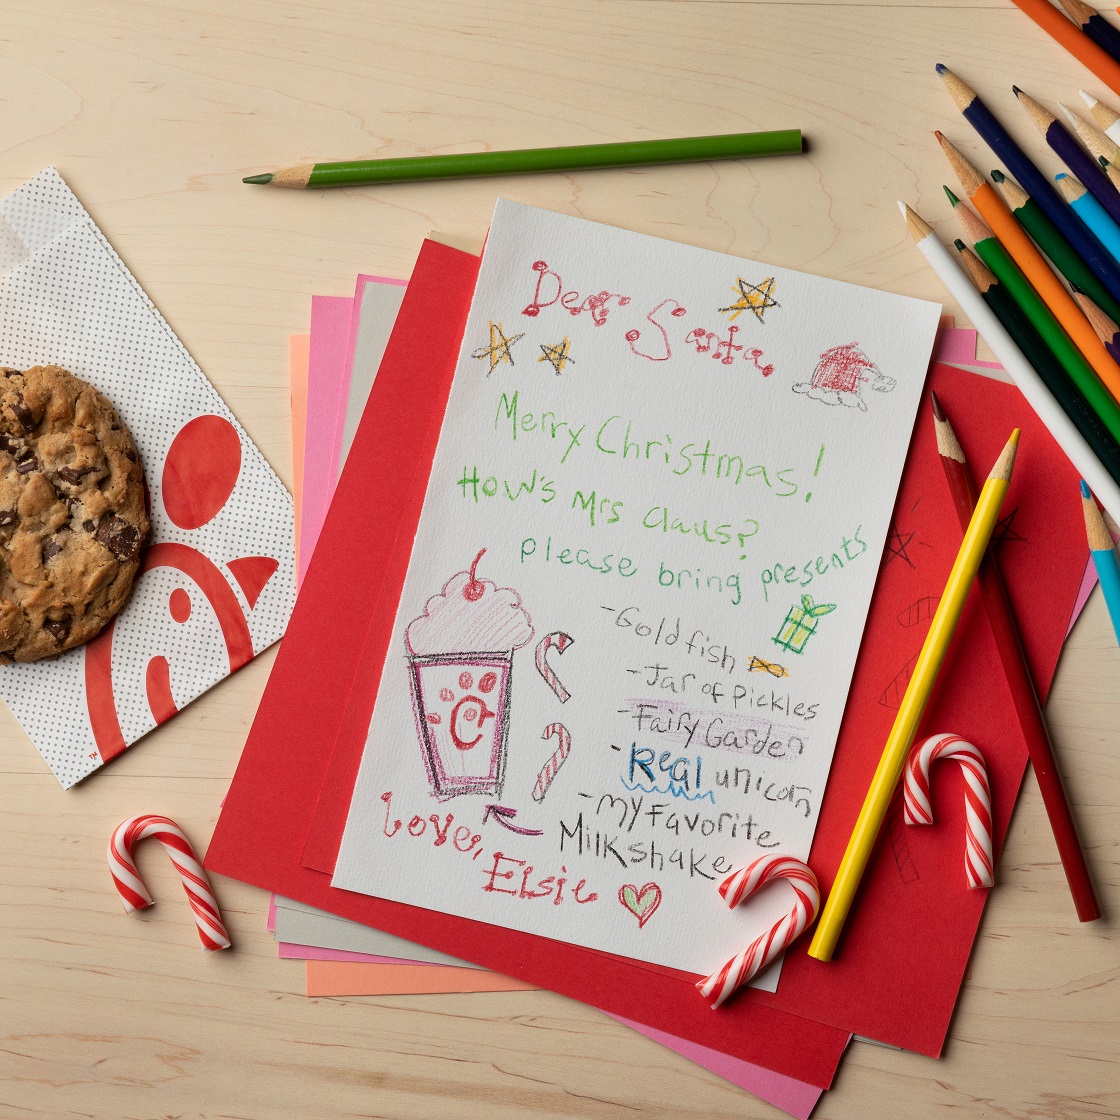 Dear Santa,
Merry Christmas!
How's Mrs Claus?
please bring presents
-Goldfish
-Jar of Pickles
-Fairy Garden
-Real unicorn
-my Favorite
Milkshake
Love,
Elsie
TM